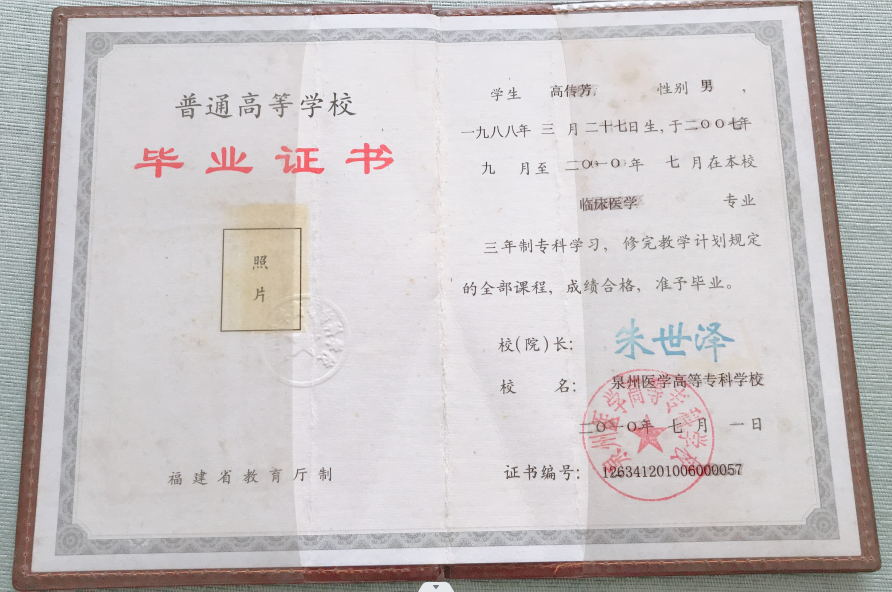 普通高等学校
毕业证书
照
片
福建省教育厅制
学生 高传芳, 性别 男 ,
一九八八年 三 月二十七日生,于二〇〇七年
九 月至 二〇一〇年 七 月在本校
临床医学 专业
三年制专科学习, 修完教学计划规定
的全部课程, 成绩合格, 准予毕业。
校(院)长: 朱世泽
校 名: 泉州医学高等专科学校
二〇一〇年 七 月 一日
证书编号: 126341201006000057
泉州医学高等专科学校